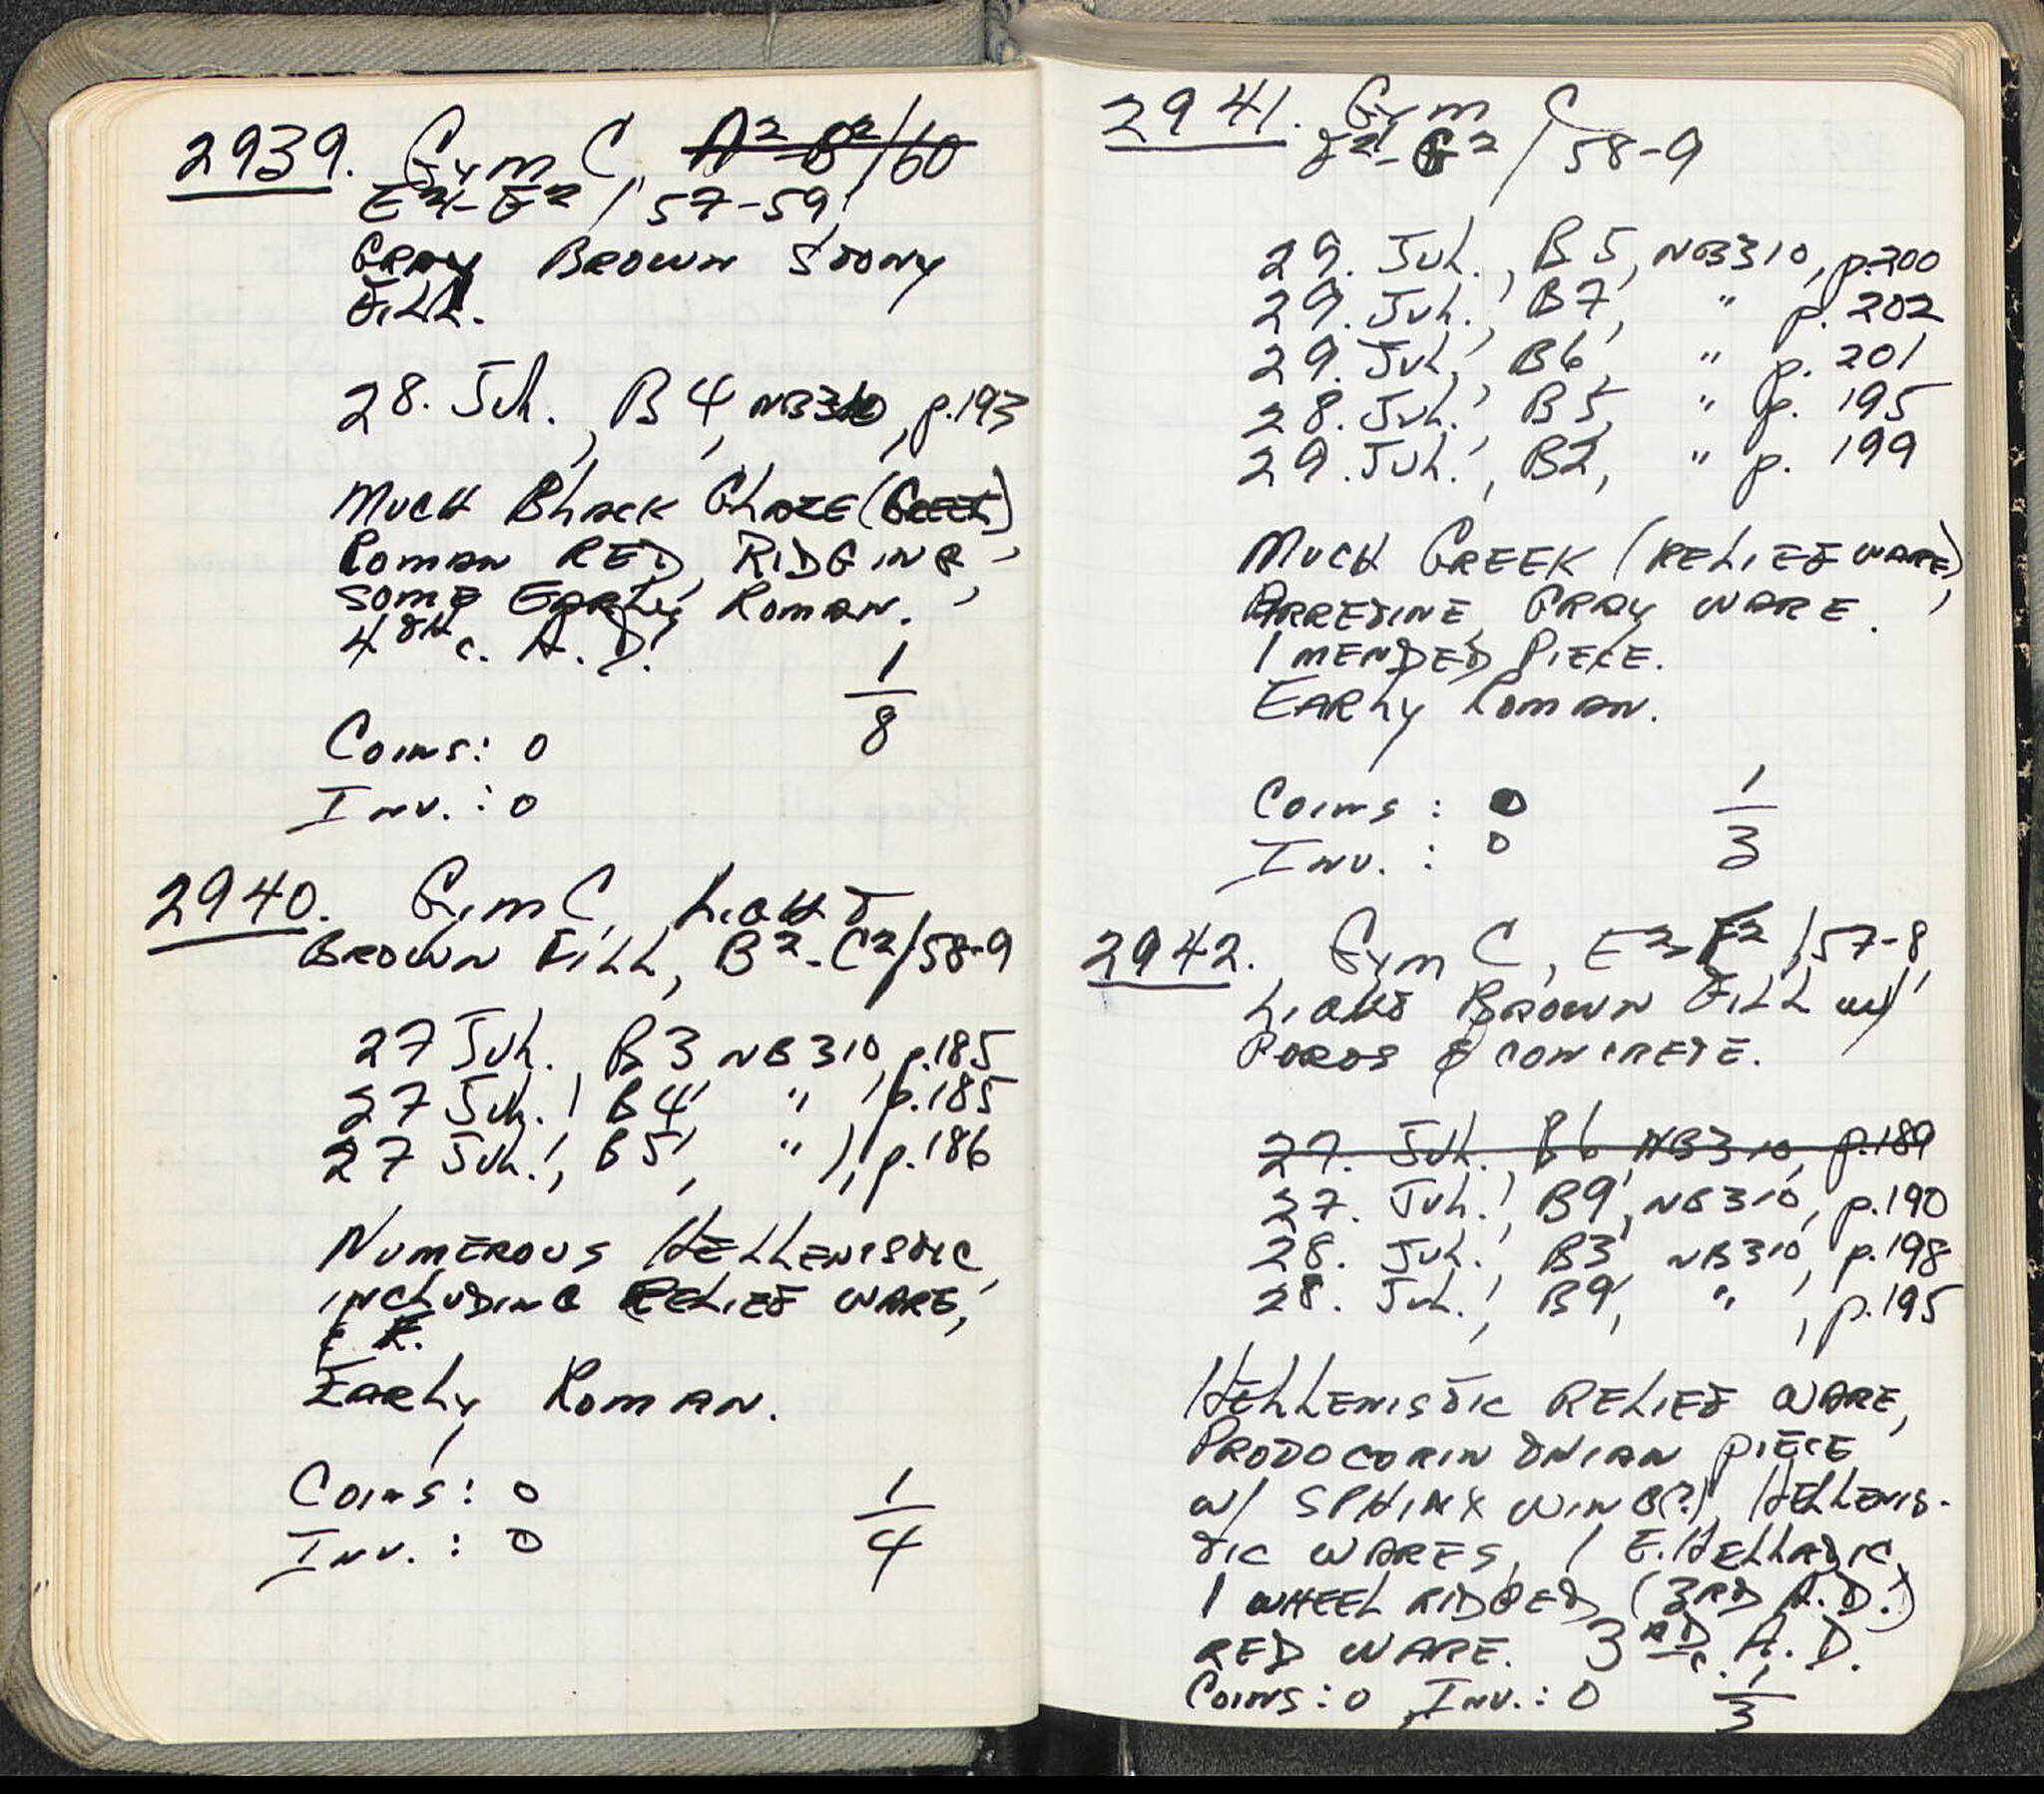 2939. Gym C, A²-B²/60
E²-F² / 57-59,
Gray Brown Stony
Fill.
28. Jul., B4, NB310, p.193
Much Black Glaze (Greek),
Roman Red, Ridging,
some Early Roman.
4th c. A.D.
1/8
Coins: 0
Inv.: 0
2940. Gym C, Light
Brown Fill, B²-C²/58-9
27 Jul., B3 NB310, p.185
27 Jul., B4, " , p.185
27 Jul., B5, " , p.186
Numerous Hellenistic,
including Relief Ware,
Early Roman.
Coins: 0
Inv.: 0
1/4
2941. Gym C
F²-G² / 58-9
29. Jul., B5, NB310, p.200
29. Jul., B7, " p. 202
29. Jul., B6, " p. 201
28. Jul., B5, " p. 195
29. Jul., B2, " p. 199
Much Greek (Relief Ware),
Arretine, Gray Ware.
1 mended Piece.
Early Roman.
Coins: 0
Inv.: 0
1/3
2942. Gym C, E²-F² / 57-8,
Light Brown Fill w/
Poros & concrete.
27. Jul., B6, NB310, p.189
27. Jul., B9, NB310, p.190
28. Jul., B3, NB310, p.198
28. Jul., B9, " , p.195
Hellenistic Relief Ware,
Protocorinthian piece
w/ Sphinx wing(?), Hellenis-
tic wares, 1 E. Helladic,
1 wheel ridged (3rd A.D.)
Red Ware. 3rd c. A.D.
Coins: 0 Inv.: 0 1/3